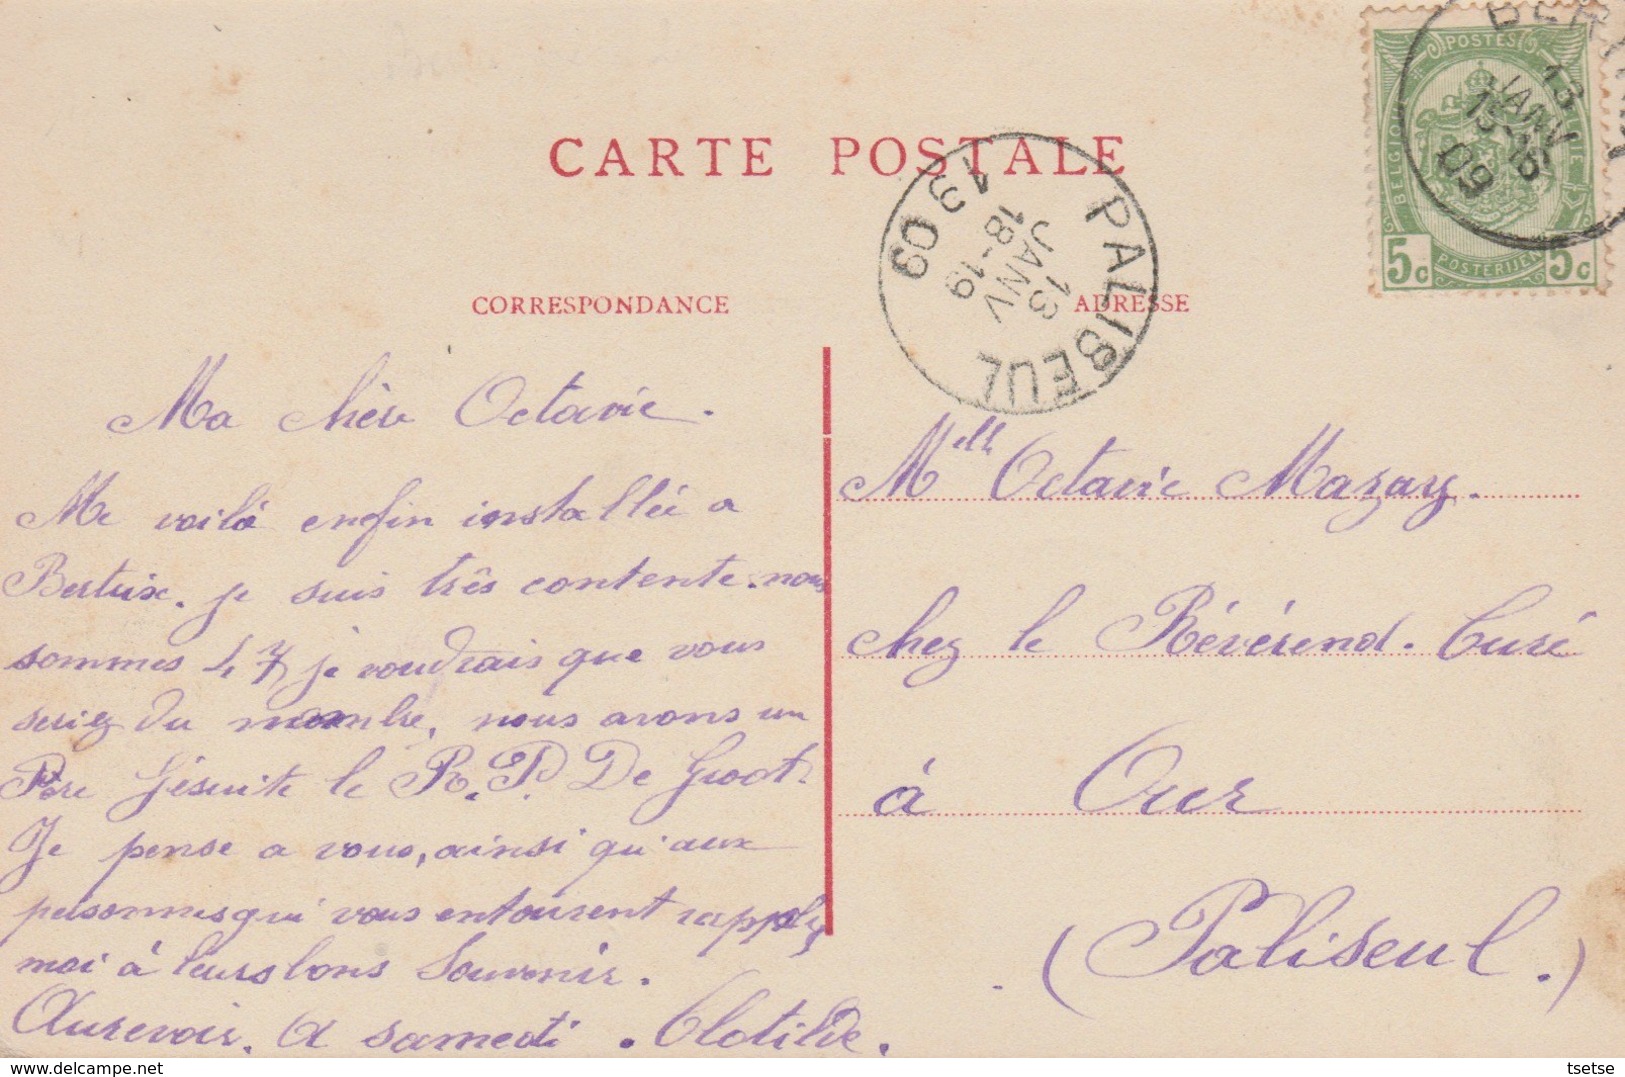 CARTE POSTALE
CORRESPONDANCE
ADRESSE
POSTES
BELGIQUE
BELGIE
5c POSTERIJEN 5c
13
JANV
15-16
09
PALISEUL
18-19
13
JANV
1909
Ma chère Octavie.
Me voilà enfin installée a
Bertrix. je suis très contente. nous
sommes 47 je voudrais que vous
seriez du nombre, nous avons un
Père Jésuite le R. P. De Groot.
Je pense a vous, ainsi qu'aux
personnes qui vous entourent rappelez
moi à leurs bons Souvenir.
Aurevoir. A samedi. Clotilde.
Melle Octavie Mazay.
chez le Révérend. Curé
à Our
(Paliseul.)
delcampe.net
tsetse